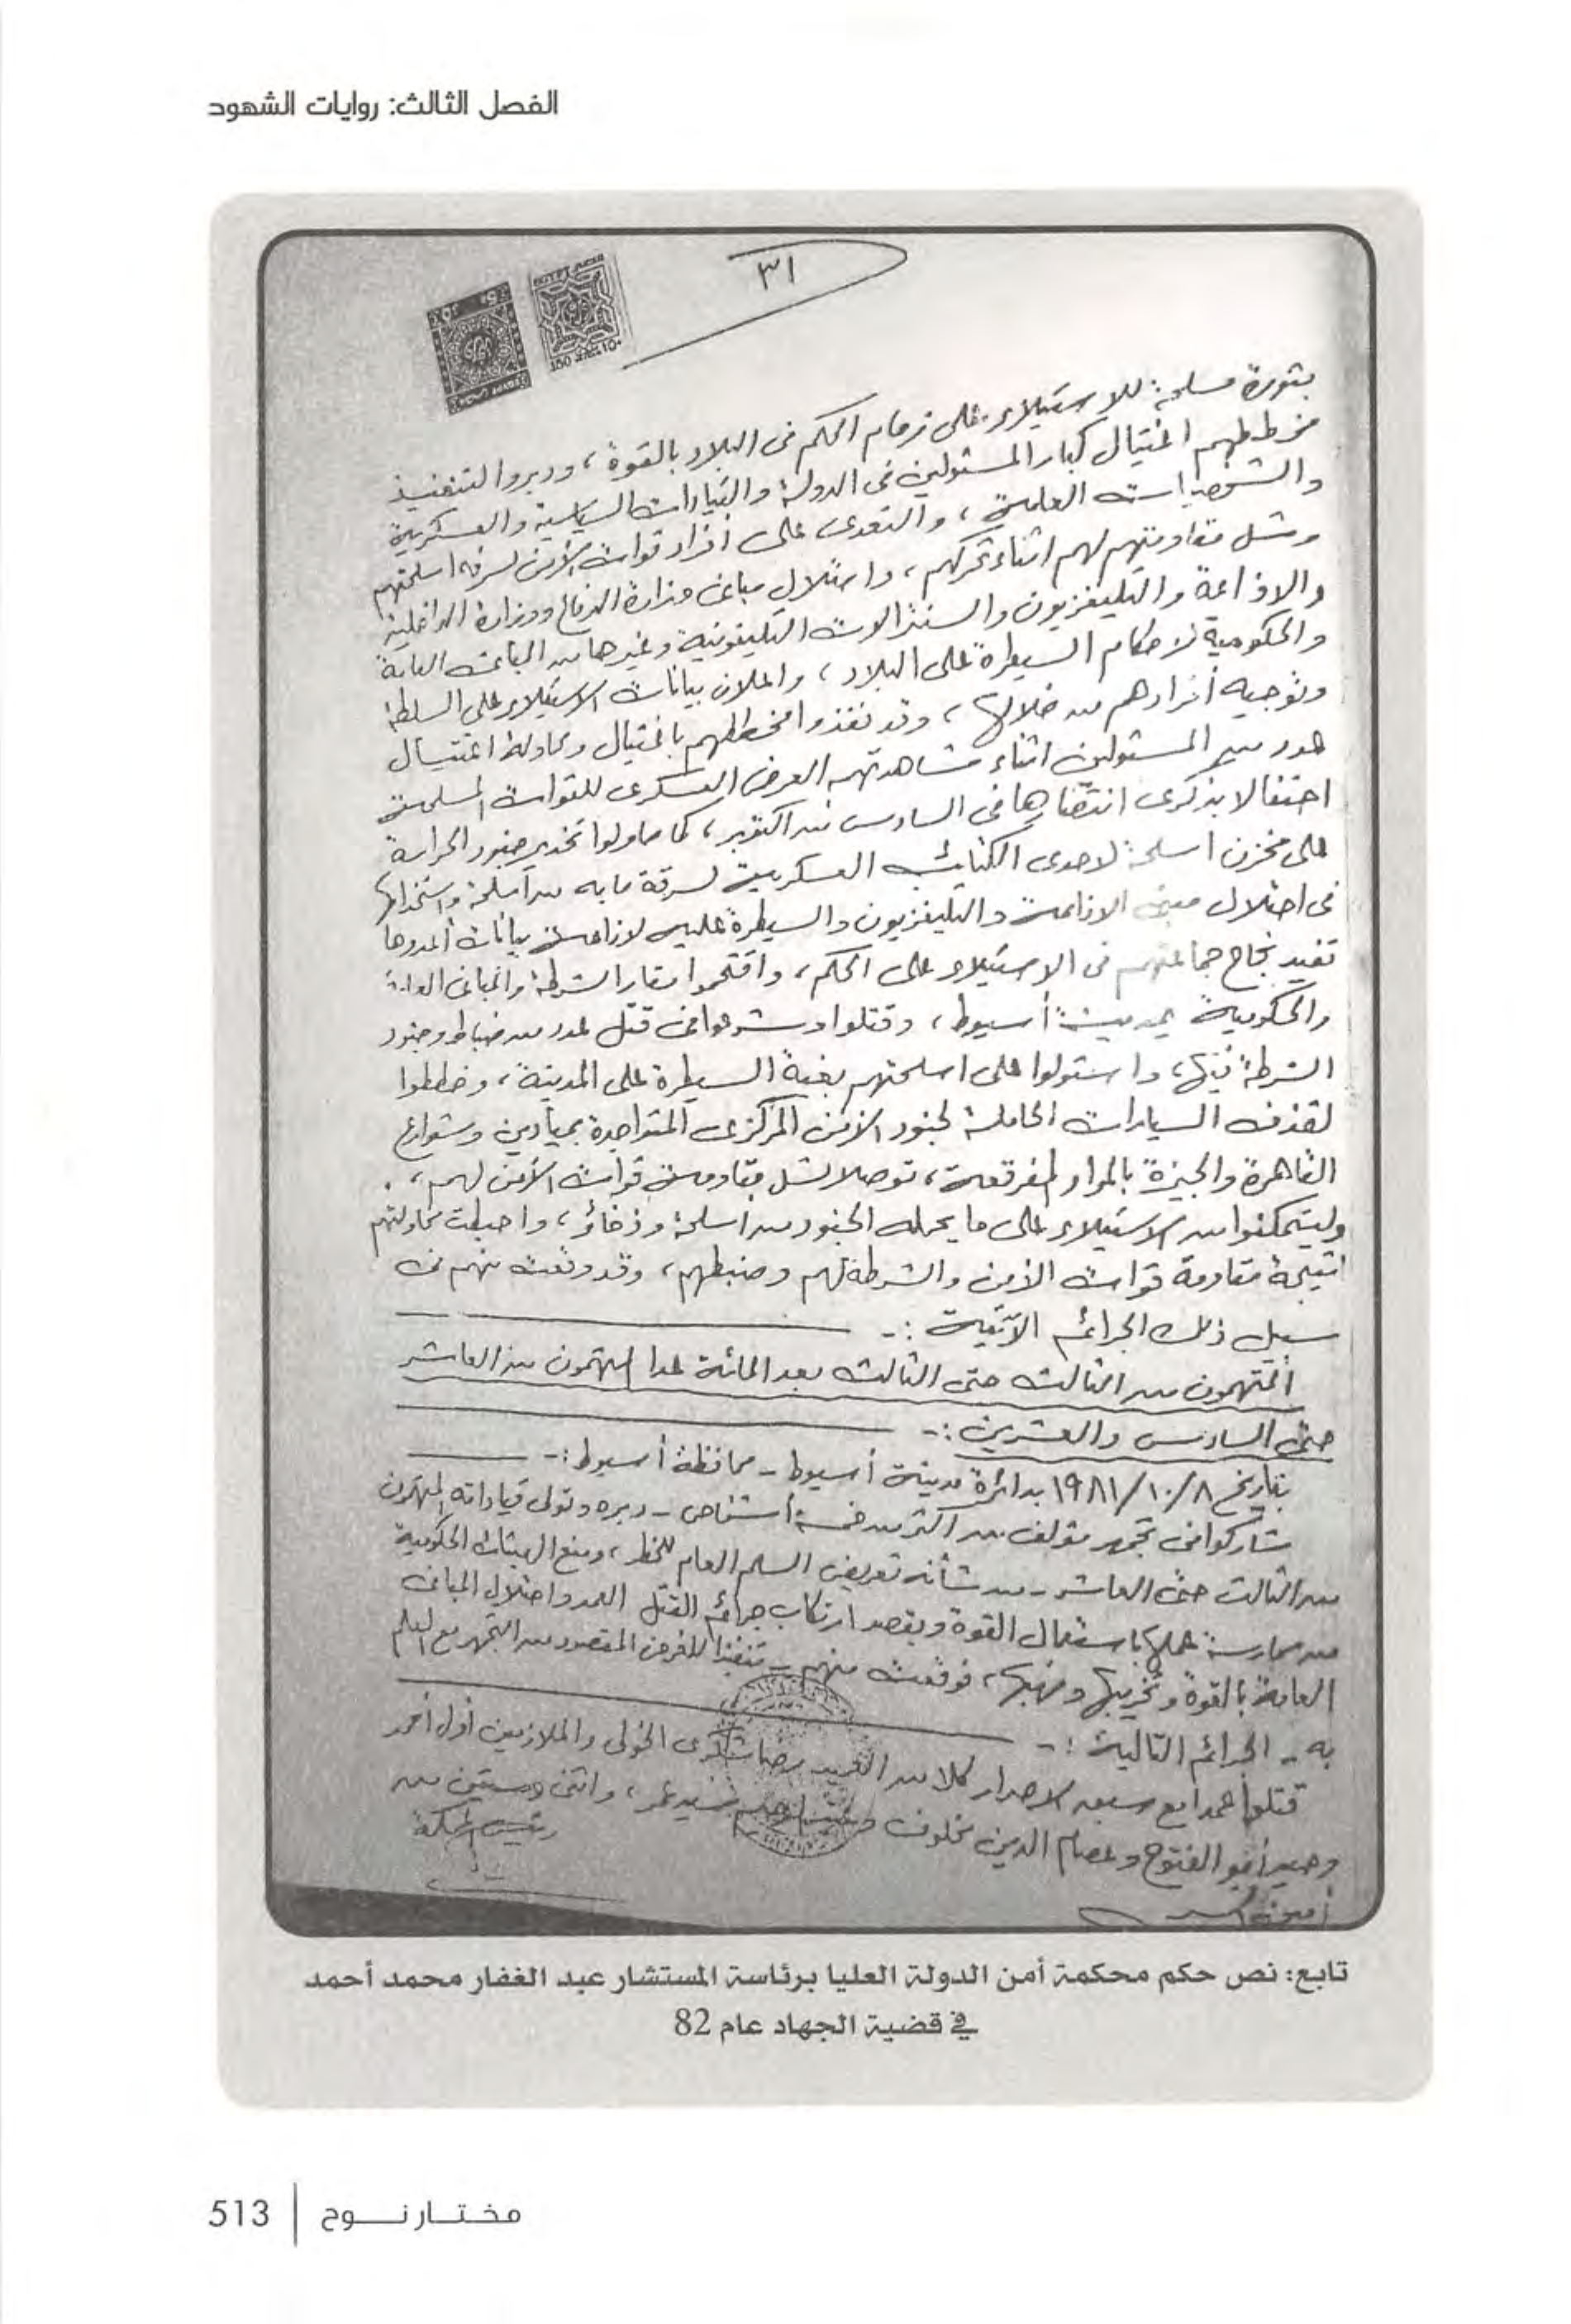 الفصل الثالث: روايات الشهود
٣١
بثورة مسلحة للاستيلاء على زمام الحكم فى البلاد بالقوة ، ودبروا لتنفيذ
مخططهم اغتيال كبار المسئولين فى الدولة والقيادات السياسية والعسكرية
والشخصيات العامة ، والتعدى على أفراد قوات الأمن لسرقة اسلحتهم
وشل مقاومتهم لهم اثناء تحركهم ، واحتلال مبانى وزارة الدفاع ووزارة الداخلية
والاذاعة والتليفزيون والسنترالات التليفونية وغيرها من المبانى العامة
والحكومية لاحكام السيطرة على البلاد ، واعلان بيانات الاستيلاء على السلطة
وتوجيه أفرادهم من خلالها ، وقد نفذوا مخططهم باغتيال ومحاولة اغتيال
عدد من المسئولين اثناء مشاهدتهم العرض العسكرى للقوات المسلحة
احتفالا بذكرى انتصارها فى السادس من اكتوبر ، كما حاولوا تخدير جنود الحراسة
على مخزن اسلحة لاحدى الكتائب العسكرية لسرقة ما به من أسلحة واستخدامها
فى احتلال مبنى الاذاعة والتليفزيون والسيطرة عليه لاذاعة بيانات أعدوها
تفيد نجاح جماعتهم فى الاستيلاء على الحكم ، واقتحموا مقار الشرطة والمبانى العامة
والحكومية بمدينة أسيوط ، وقتلوا وشرعوا فى قتل عدد من ضباط وجنود
الشرطة فيها ، واستولوا على اسلحتهم بغية السيطرة على المدينة ، وخططوا
لقذف السيارات الحاملة لجنود الأمن المركزى المتواجدة بميادين وشوارع
القاهرة والجيزة بالمواد المفرقعة ، توصلا لشل مقاومة قوات الأمن لهم ،
وليتمكنوا من الاستيلاء على ما يحمله الجنود من أسلحة وذخائر ، واحبطت محاولتهم
نتيجة مقاومة قوات الأمن والشرطة لهم وضبطهم ، وقد وقعت منهم فى
سبيل ذلك الجرائم الآتية :-
المتهمون من الثالث حتى الثالث بعد المائة عدا المتهمون من العاشر
حتى السادس والعشرين :-
بتاريخ ١٩٨١/١٠/٨ بدائرة مدينة أسيوط - محافظة أسيوط :-
شاركوا فى تجمهر مؤلف من اكثر من خمسة أشخاص - دبره وتولى قياداته المتهمون
من الثالث حتى العاشر - من شأنه تعريض السلم العام للخطر ، ومنع الهيئات الحكومية
من ممارسة عملها باستعمال القوة وبقصد ارتكاب جرائم القتل العمد واحتلال المبانى
العامة بالقوة وتخريبها ونهبها ، فوقعت منهم - تنفيذا للغرض المقصود من التجمهر مع العلم
به - الجرائم التالية :-
قتلوا عمدا مع سبق الاصرار كلا من العميد رضا شكرى الخولى والملازمين أول أحمد
وحيد أبو الفتوح وعصام الدين مخلوف ، واثنى وستين من
رئيس المحكمة
أمين السر
تابع: نص حكم محكمة أمن الدولة العليا برئاسة المستشار عبد الغفار محمد أحمد
في قضية الجهاد عام 82
مختار نوح | 513